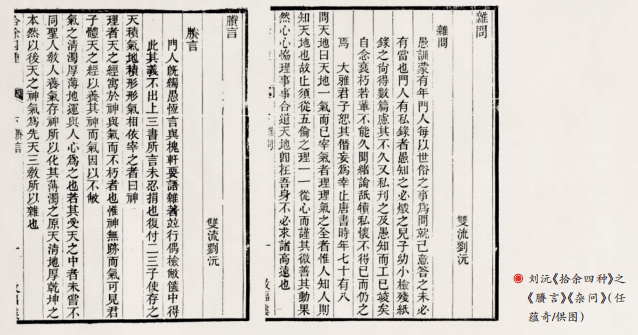 雜問
雜問
雙流劉沅
愚訓蒙有年門人每以世俗之事爲問就己意答之未必
有當也門人有私錄者愚知之必燬之兒子幼小檢殘紙
錄之尙得數篇慮其不久又私刊之及愚知而工已竣矣
自念衰朽若輩不能久聞緒論舐犢私懷不得已而仍之
焉 大雅君子恕其僭妄爲幸止唐書時年七十有八
問天地曰天地一氣而已宰氣者理理氣之全者惟人知人則
知天地也故止須從五倫之理一一從心而謹其微善其動果
然心心恊理事事合道天地卽在吾身不必求諸高遠也
賸言
賸言
雙流劉沅
門人旣鐫愚恆言與槐軒要語雜著竝行偶檢敝簏中得
此其義不出上三書所言未忍捐也復付二三子使存之
天積氣地積形形氣相依宰之者曰神
理者天之經寓於神與氣而不朽者也惟神無跡而氣可見君
子體天之經以養其神而氣因以不敝
氣之清濁厚薄地運與人心爲之也若其受天之中者未嘗不
同聖人敎人養氣存神所以化其薄濁之原天清地厚乾坤之
本然以後天之神氣爲先天三敎所以雜也
拾余四種 下 賸言 一
刘沅《拾余四种》之
《賸言》《杂问》(任
蕴奇/供图)